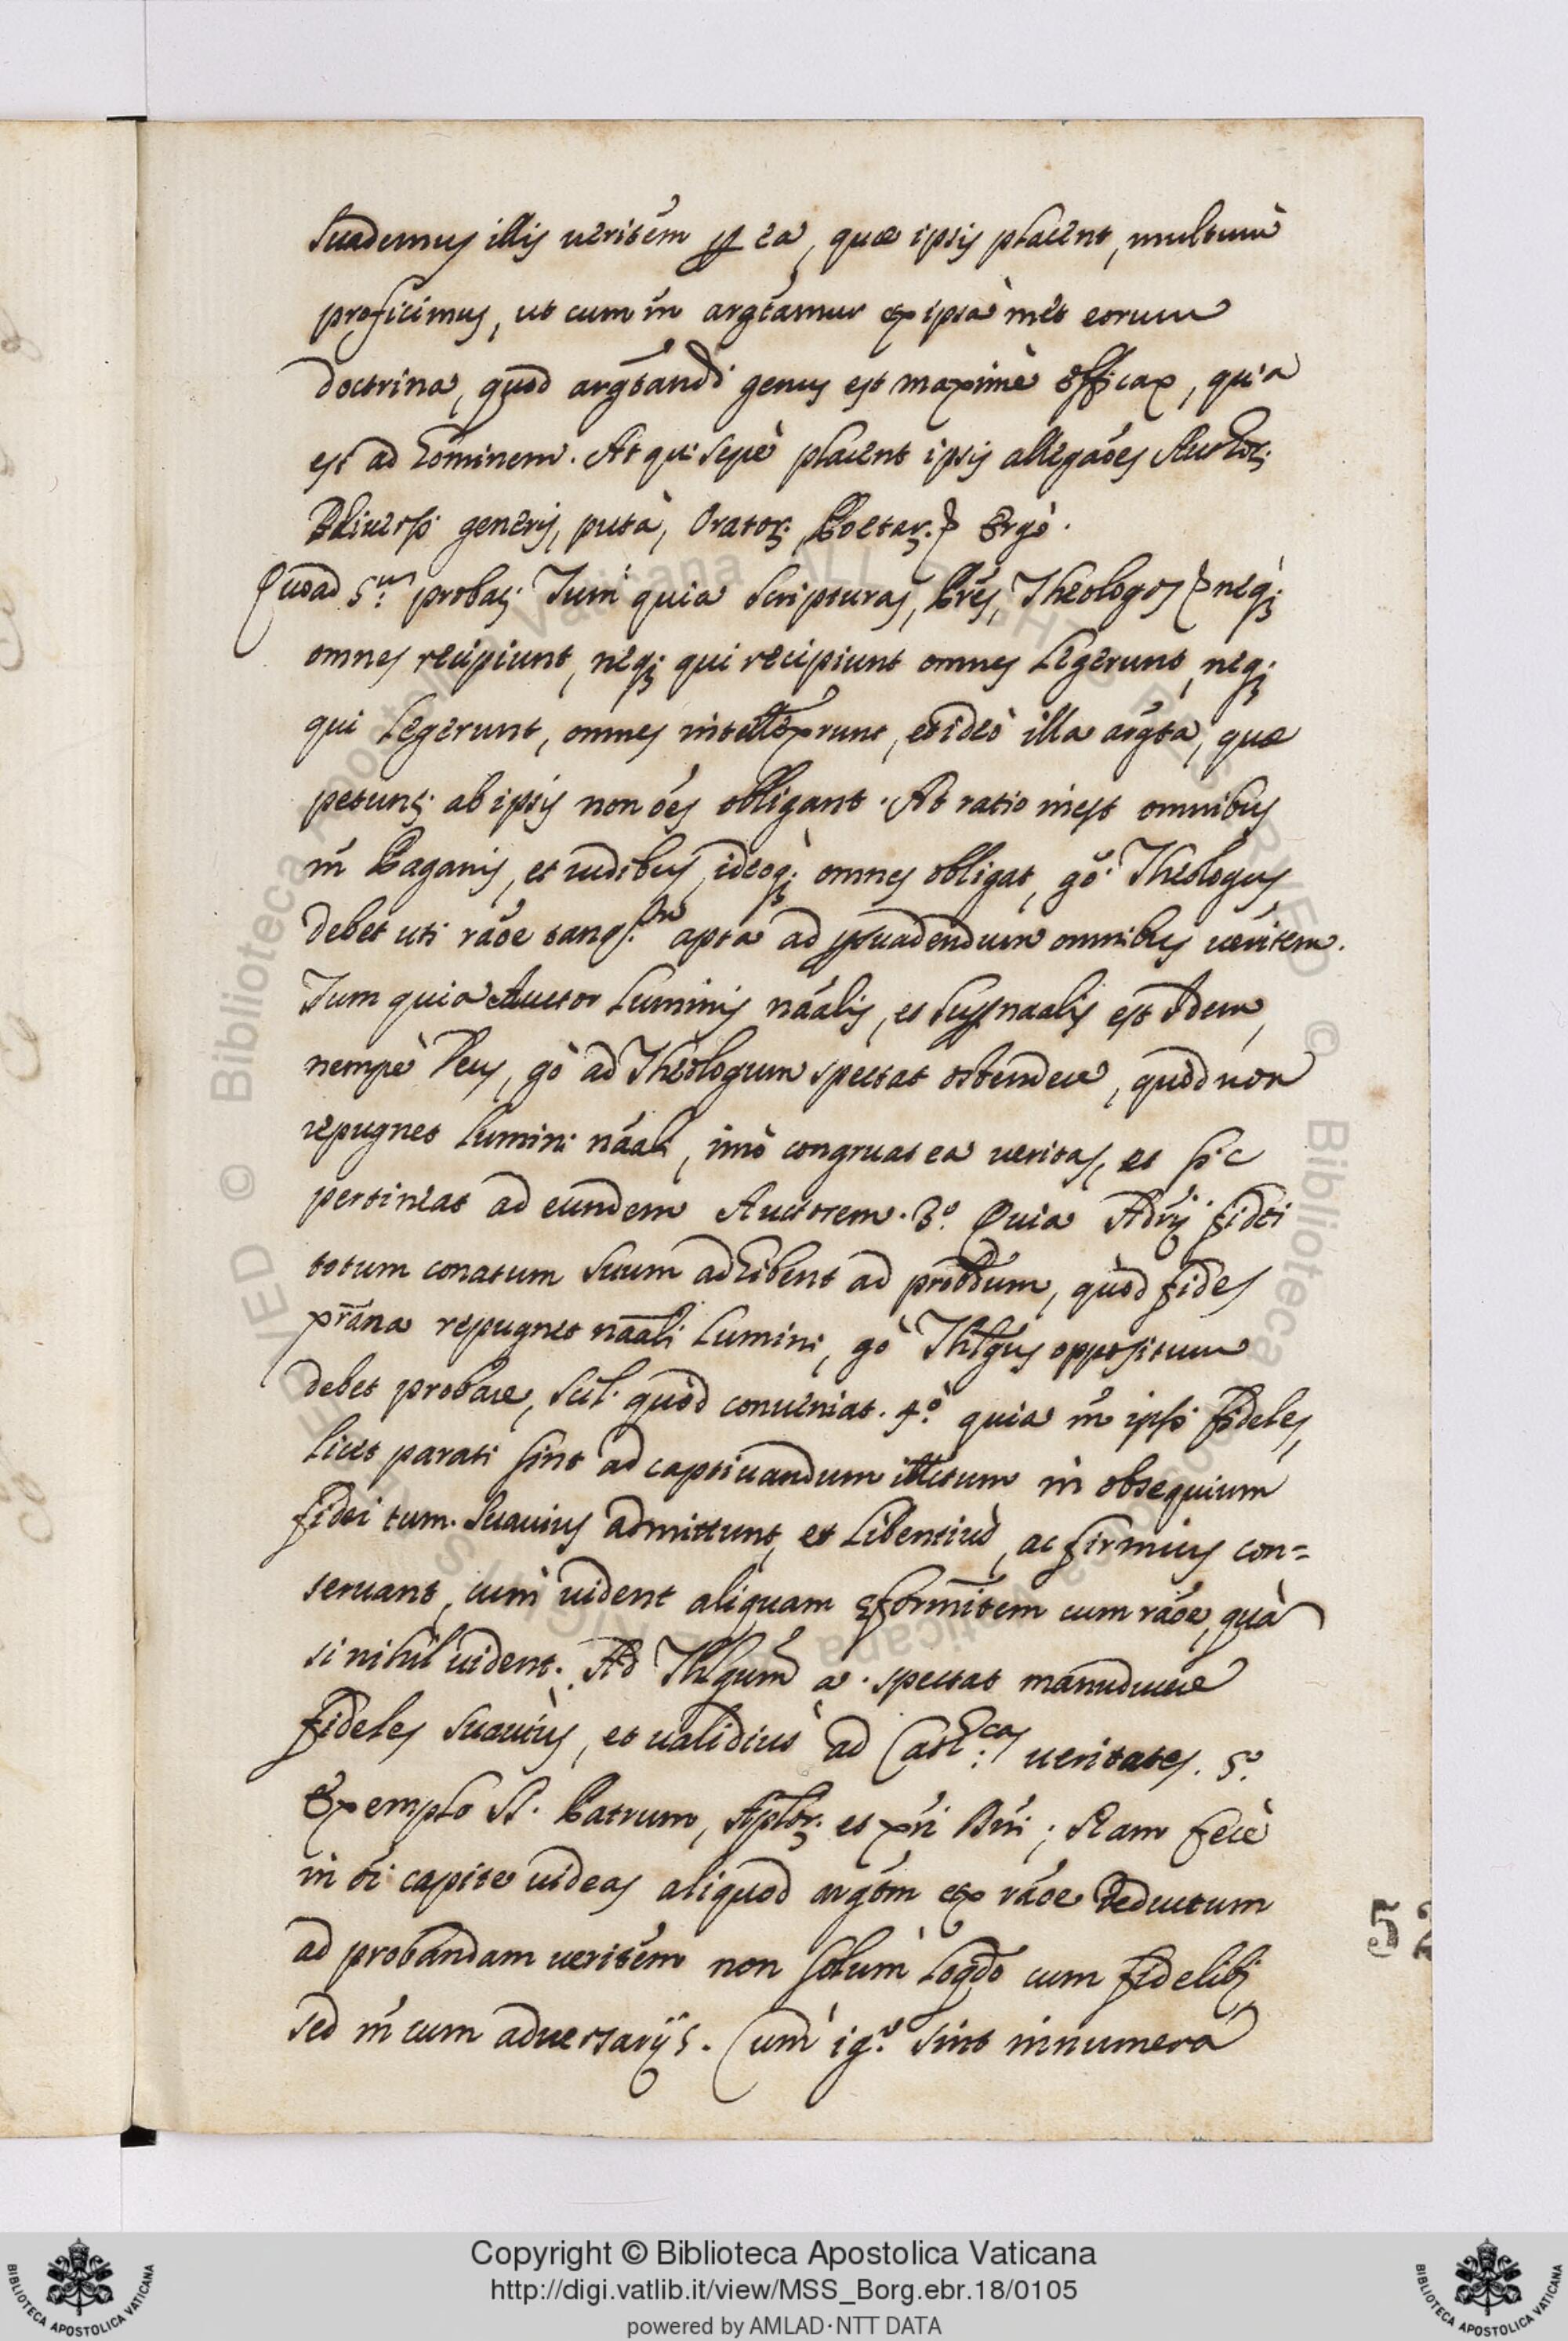 suademus illis veritẽm ꝑ ea, quæ ipsis placent, multum̀
proficimus, ut cum m̃ argt̃amur ex ipsa m̀et eorum
doctrina, quod argt̃andi genus est maximè efficax, quia
est ad hominem. At qui sepè placent ipsis allegaões Auctoꝝ
diuersi generis, putà, Oratoꝝ, Poetaꝝ &c Ergò.
Quoad 5.ᵐ probaꝭ Tum̀ quia Scripturas, PP̃res, Theologos &c neqꝫ
omnes recipiunt, neqꝫ qui recipiunt omnes legerunt, neqꝫ
qui legerunt, omnes intellexẽrunt, et ideò illa argt̃a, quæ
petunꝭ ab ipsis non oẽs obligant. At ratio inest omnibus
m̃ Paganis, et rudibus, ideoqꝫ omnes obligat, gõ Theologus
debet uti raõe tanq.ᵐ apta ad ꝑsuadendum omnibus verit̃em.
Tum quia Auctor luminis naãlis, et suꝑnaalis est idem,
nempè Deus, gò ad Theologum spectat ostendere, quòd non
repugnet lumini naãli, imò congruat ea veritas, et sic
pertineat ad eundem Auctorem. 3.º Quia Adrij̃ fidei
totum conatum suum adhibent ad probdũm, quòd fides
xr̃ana repugnet naãli lumini, gò Thlg̃us oppositum
debet probare, scil. quòd conueniat. 4.º quia m̃ ipsi fideles,
licet parati sint ad captiuandum itll̃ctum in obsequium
fidei tum. suauius admittunt, et libentiùs, ac firmius con=
seruant, cum̀ vident aliquam ɔformit̃em cum raõe, quà
si nihil vident. Ad Thlg̃um a. spectat manuducere
fideles suauiùs, et validiùs ad Cathᶜᵃˢ veritates. 5.º
Exemplo SS. Patrum, Aplõꝝ et xr̃i Dñi; Nam ferè
in õi capite videas aliquod argt̃m ex raõe deductum
ad probandam verit̃em non solum̀ loq̃do cum fidelibꝫ
sed m̃ cum aduersarijs. Cum̀ ig.ʳ sint innumera
52
Copyright © Biblioteca Apostolica Vaticana
http://digi.vatlib.it/view/MSS_Borg.ebr.18/0105
powered by AMLAD·NTT DATA